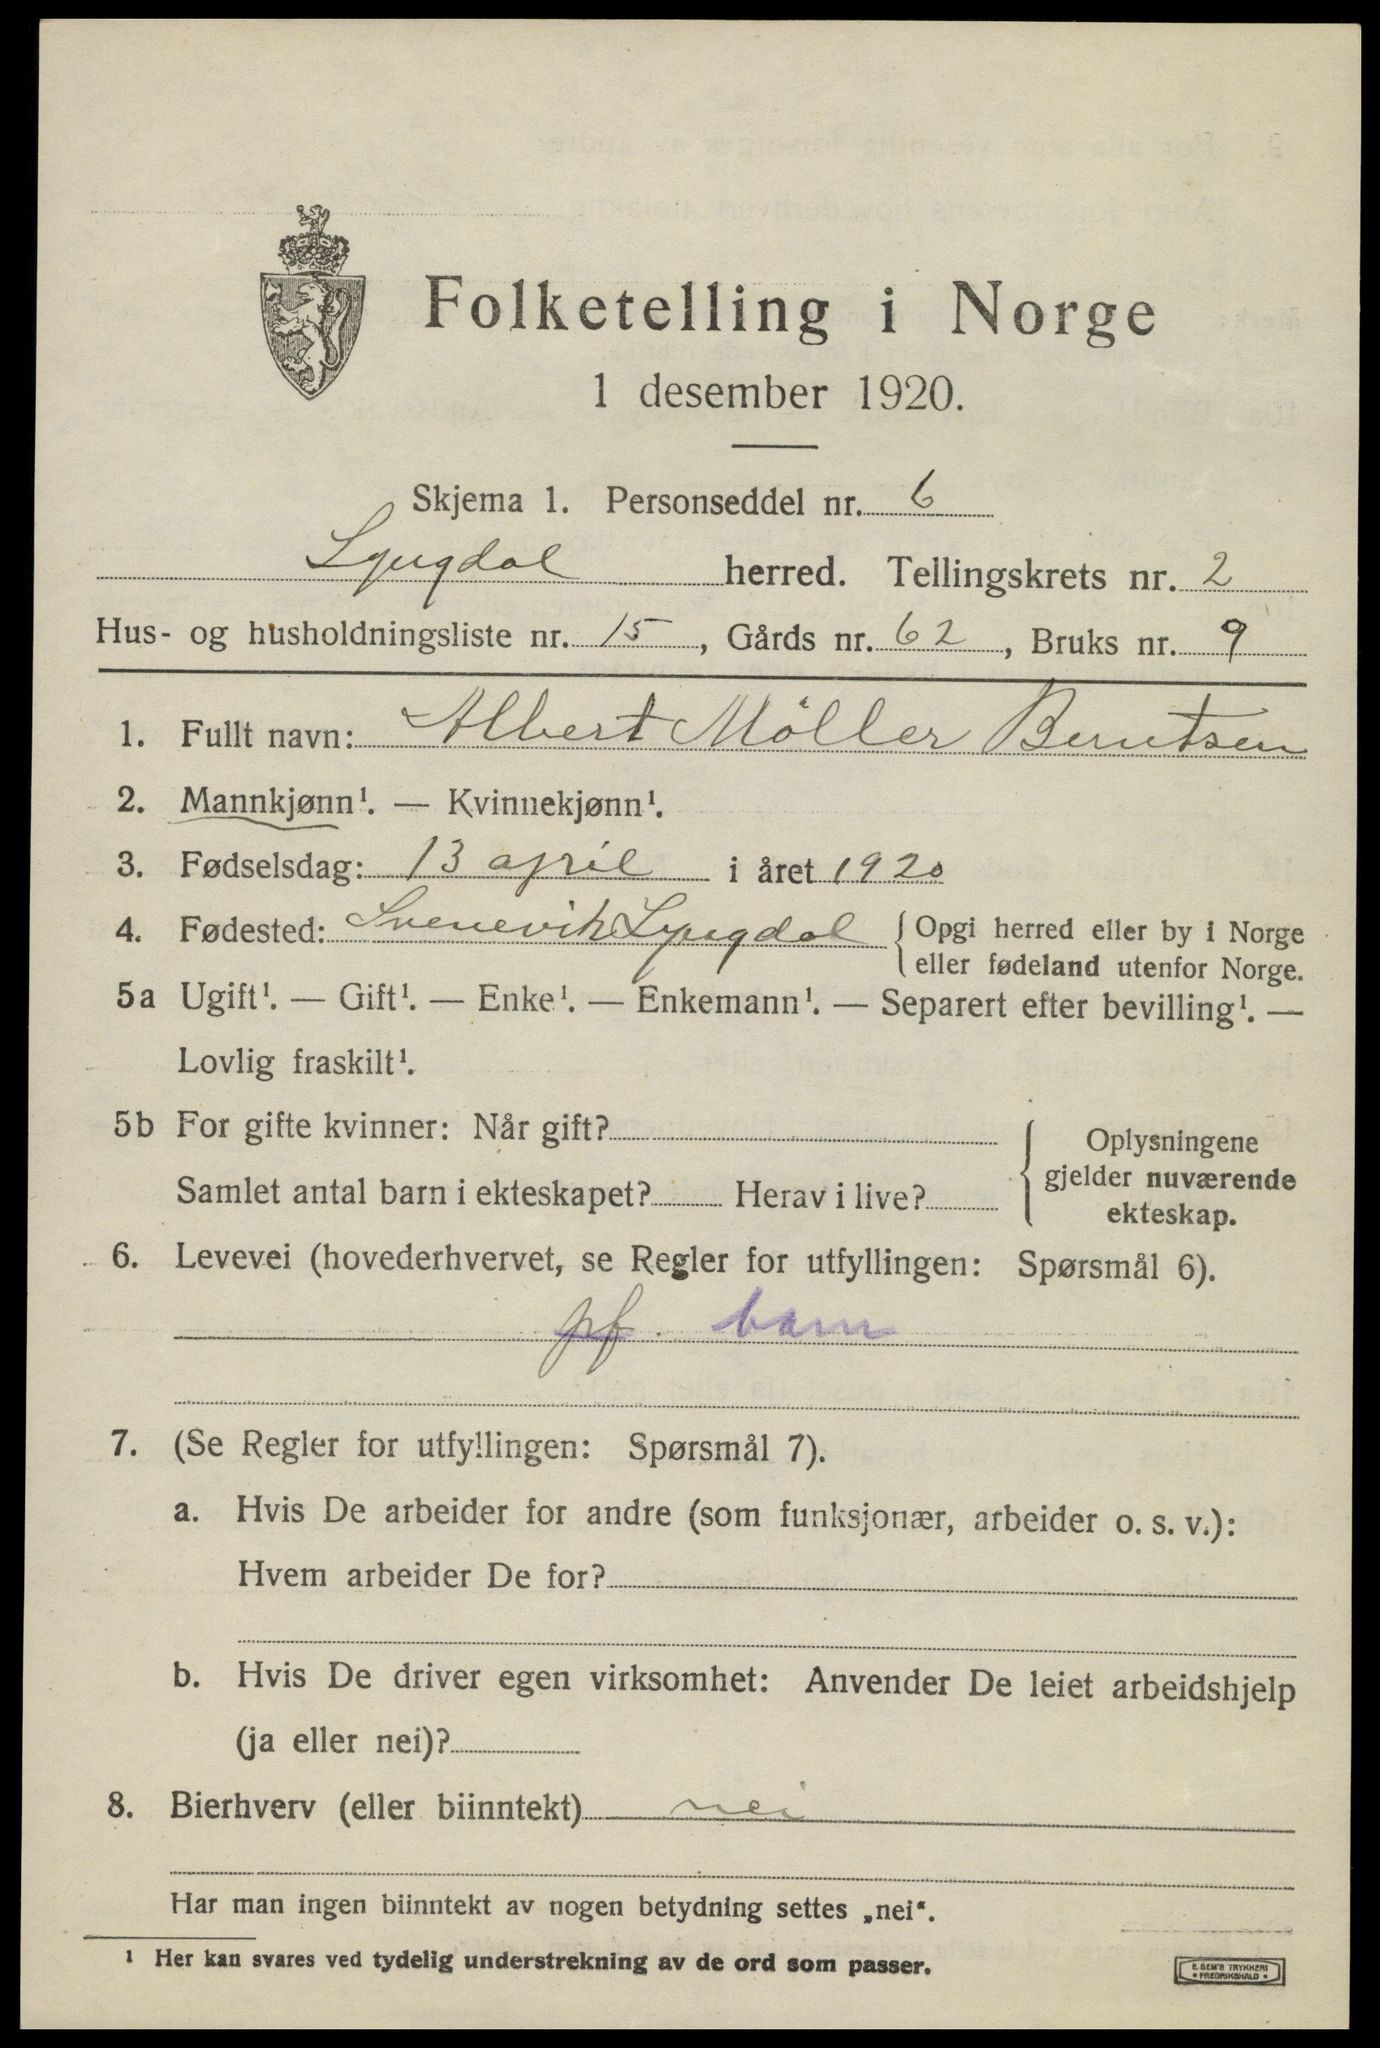 Folketelling i Norge
1 desember 1920.
Skjema 1. Personseddel nr. 6
Lyngdal herred. Tellingskrets nr. 2
Hus- og husholdningsliste nr. 15, Gårds nr. 62, Bruks nr. 9
1. Fullt navn: Albert Möller Berntsen
2. Mannkjønn¹. — Kvinnekjønn¹.
3. Fødselsdag: 13 april i året 1920
4. Fødested: Svenevik Lyngdal { Opgi herred eller by i Norge
eller fødeland utenfor Norge.
5a Ugift¹. — Gift¹. — Enke¹. — Enkemann¹. — Separert efter bevilling¹. —
Lovlig fraskilt¹.
5b For gifte kvinner: Når gift?
Samlet antal barn i ekteskapet? Herav i live?
{ Oplysningene
gjelder nuværende
ekteskap.
6. Levevei (hovederhvervet, se Regler for utfyllingen: Spørsmål 6).
pf. barn
7. (Se Regler for utfyllingen: Spørsmål 7).
a. Hvis De arbeider for andre (som funksjonær, arbeider o. s. v.):
Hvem arbeider De for?
b. Hvis De driver egen virksomhet: Anvender De leiet arbeidshjelp
(ja eller nei)?
8. Bierhverv (eller biinntekt) nei
Har man ingen biinntekt av nogen betydning settes „nei“.
¹ Her kan svares ved tydelig understrekning av de ord som passer.
E. SEM'S TRYKKERI
• FREDRIKSHALD •